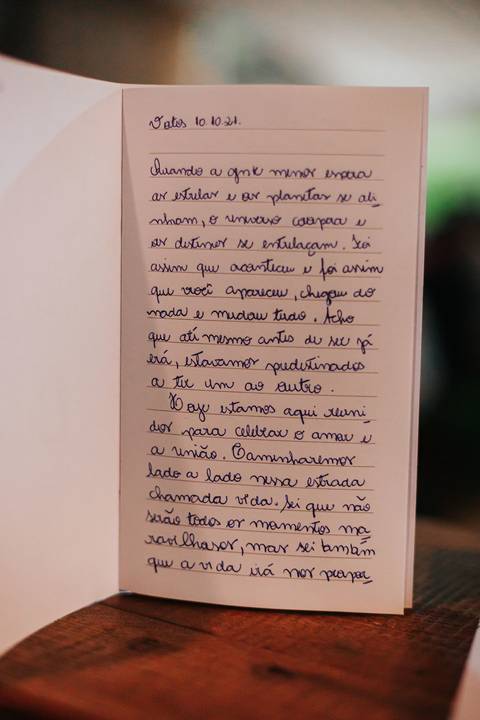 Votos 10.10.21.
Quando a gente menos espera
as estrelas e os planetas se ali-
nham, o universo conspira e
os destinos se entrelaçam. Foi
assim que aconteceu e foi assim
que você apareceu, chegou do
nada e mudou tudo. Acho
que até mesmo antes de ser já
era, estavamos predestinados
a ter um ao outro.
Hoje estamos aqui reuni-
dos para celebrar o amor e
a união. Caminharemos
lado a lado nessa estrada
chamada vida. Sei que não
serão todos os momentos ma-
ravilhosos, mas sei também
que a vida irá nos propor-